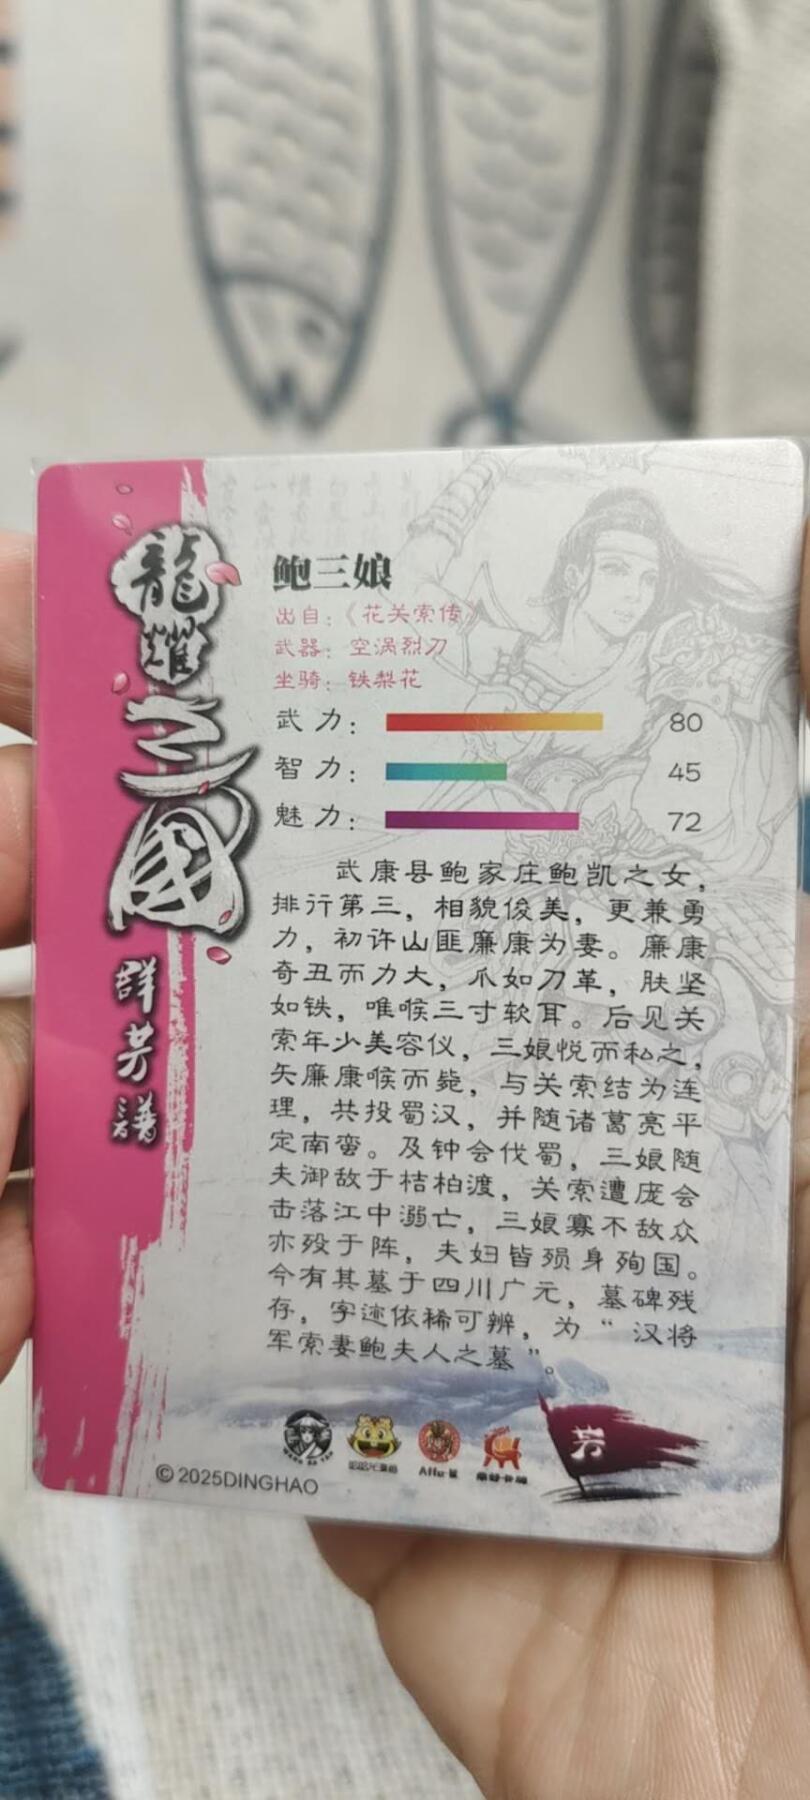 龍耀三國
群芳譜
鲍三娘
出自：《花关索传》
武器：空涡烈刀
坐骑：铁梨花
武力： 80
智力： 45
魅力： 72
武康县鲍家庄鲍凯之女，
排行第三，相貌俊美，更兼勇
力，初许山匪廉康为妻。廉康
奇丑而力大，爪如刀革，肤坚
如铁，唯喉三寸软耳。后见关
索年少美容仪，三娘悦而私之，
矢廉康喉而毙，与关索结为连
理，共投蜀汉，并随诸葛亮平
定南蛮。及钟会伐蜀，三娘随
夫御敌于桔柏渡，关索遭庞会
击落江中溺亡，三娘寡不敌众
亦殁于阵，夫妇皆殒身殉国。
今有其墓于四川广元，墓碑残
存，字迹依稀可辨，为“汉将
军索妻鲍夫人之墓”。
芳
©2025DINGHAO